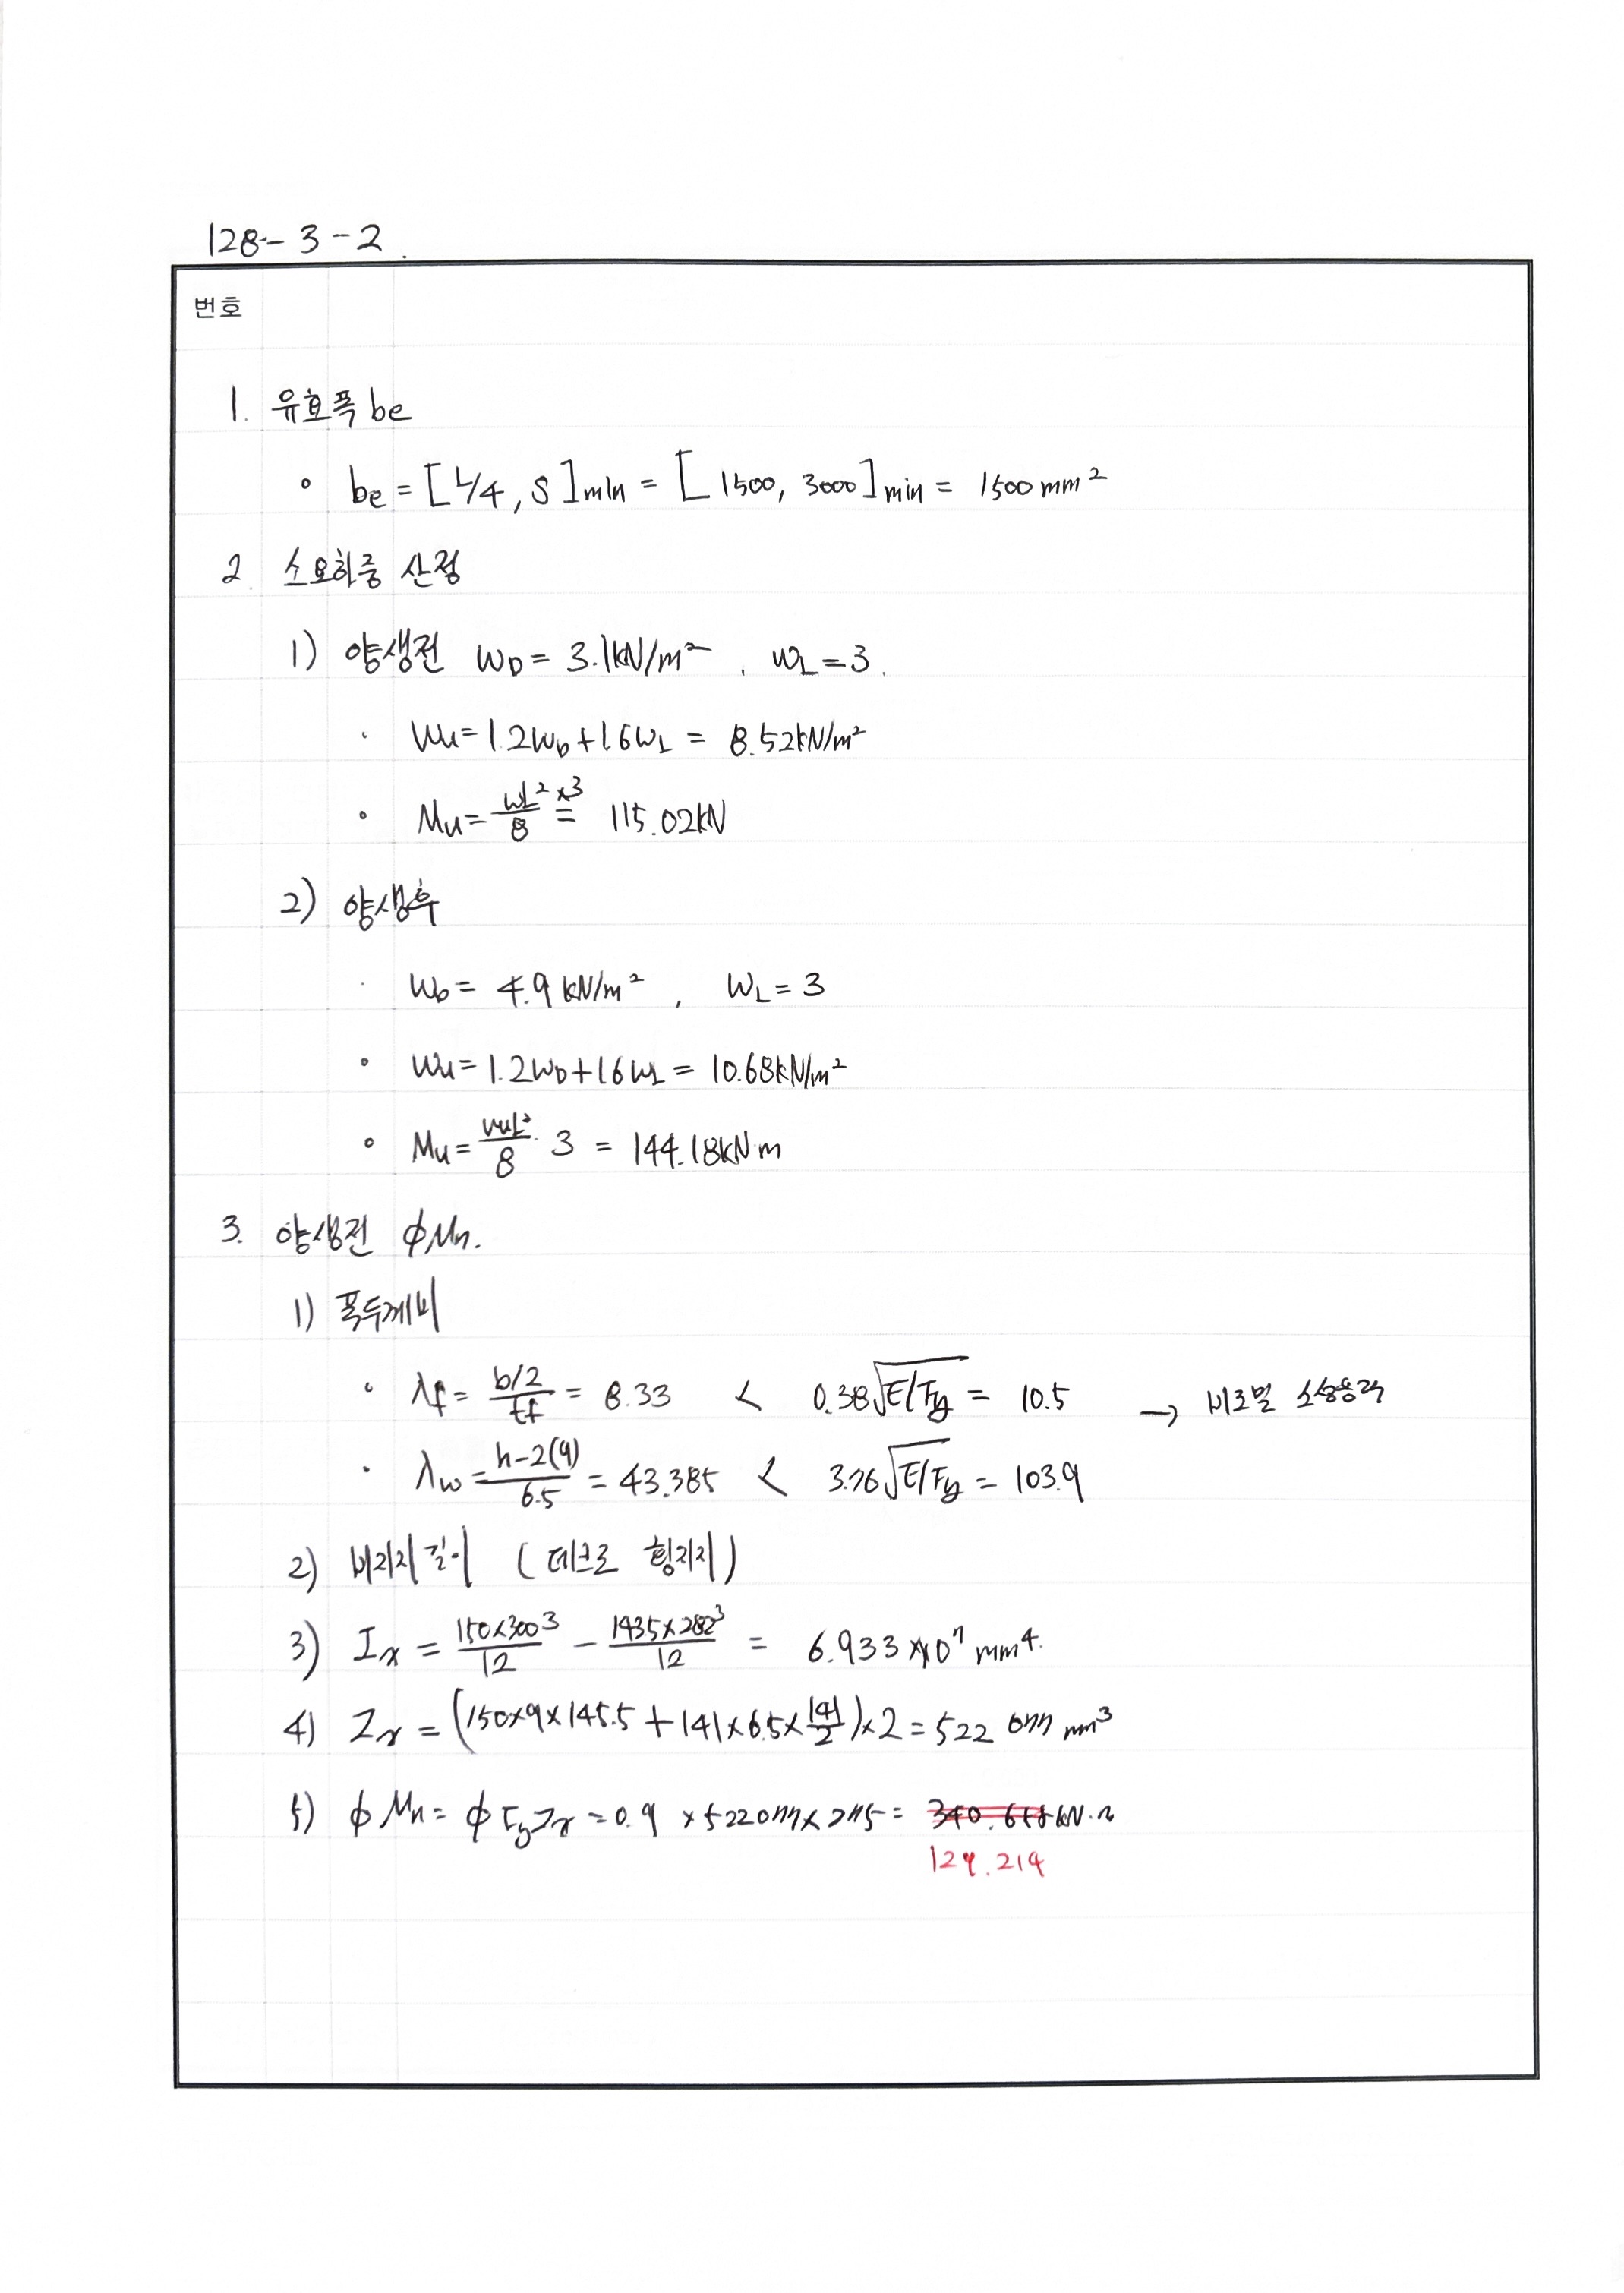 128-3-2.
번호
1. 유효폭 be
∘ be = [L/4, S]min = [1500, 3000]min = 1500mm²
2. 소요하중 산정
1) 양생전 WD = 3.1kN/m², WL = 3.
· Wu = 1.2WD + 1.6WL = 8.52kN/m²
∘ Mu = wL²/8 ×3 = 115.02kN
2) 양생후
· WD = 4.9 kN/m², WL = 3
∘ Wu = 1.2WD + 1.6WL = 10.68kN/m²
∘ Mu = WuL²/8 · 3 = 144.18kN·m
3. 양생전 ϕMn.
1) 폭두께비
∘ λf = b/2 / tf = 8.33 < 0.38√E/Fy = 10.5 → 비조밀 소성응력
· λw = h-2(9) / 6.5 = 43.385 < 3.76√E/Fy = 103.9
2) 비지지길이 (데크로 횡지지)
3) Ix = 150×300³/12 - 143.5×282³/12 = 6.933×10⁷ mm⁴.
4) Zx = (150×9×145.5 + 141×6.5×141/2)×2 = 522 077 mm³
5) ϕMn = ϕFyZx = 0.9 × 522077 × 275 = 340.618 kN·m
129.214